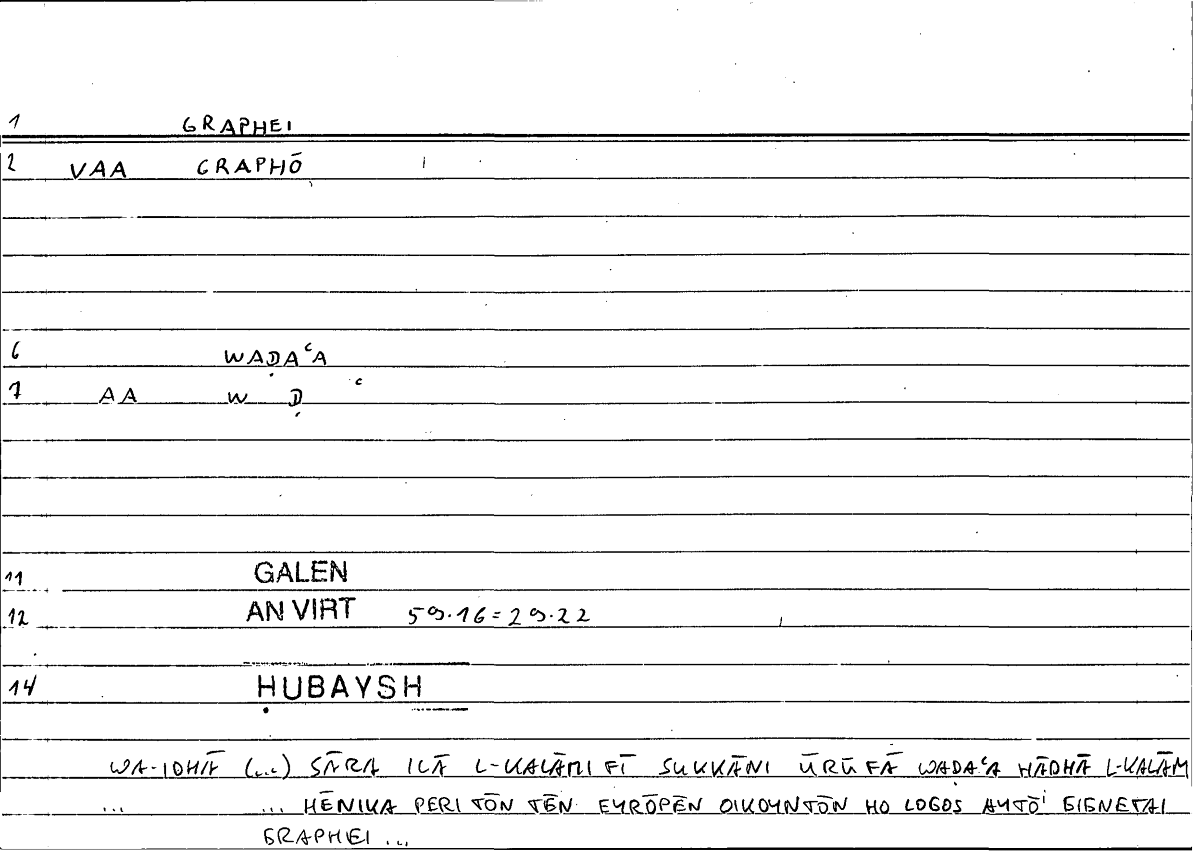 1 GRAPHEI
2 VAA GRAPHŌ
6 WAḌAʿA
7 AA W Ḍ ʿ
11 GALEN
12 AN VIRT 59.16=29.22
14 ḤUBAYSH
WA-IDHĀ (...) SĀRA ILĀ L-KALĀMI FĪ SUKKĀNI ŪRŪFĀ WADAʿA HĀDHĀ L-KALĀM
... ... HĒNIKA PERI TŌN TĒN EYRŌPĒN OIKOYNTŌN HO LOGOS AYTŌI GIGNETAI
GRAPHEI ...